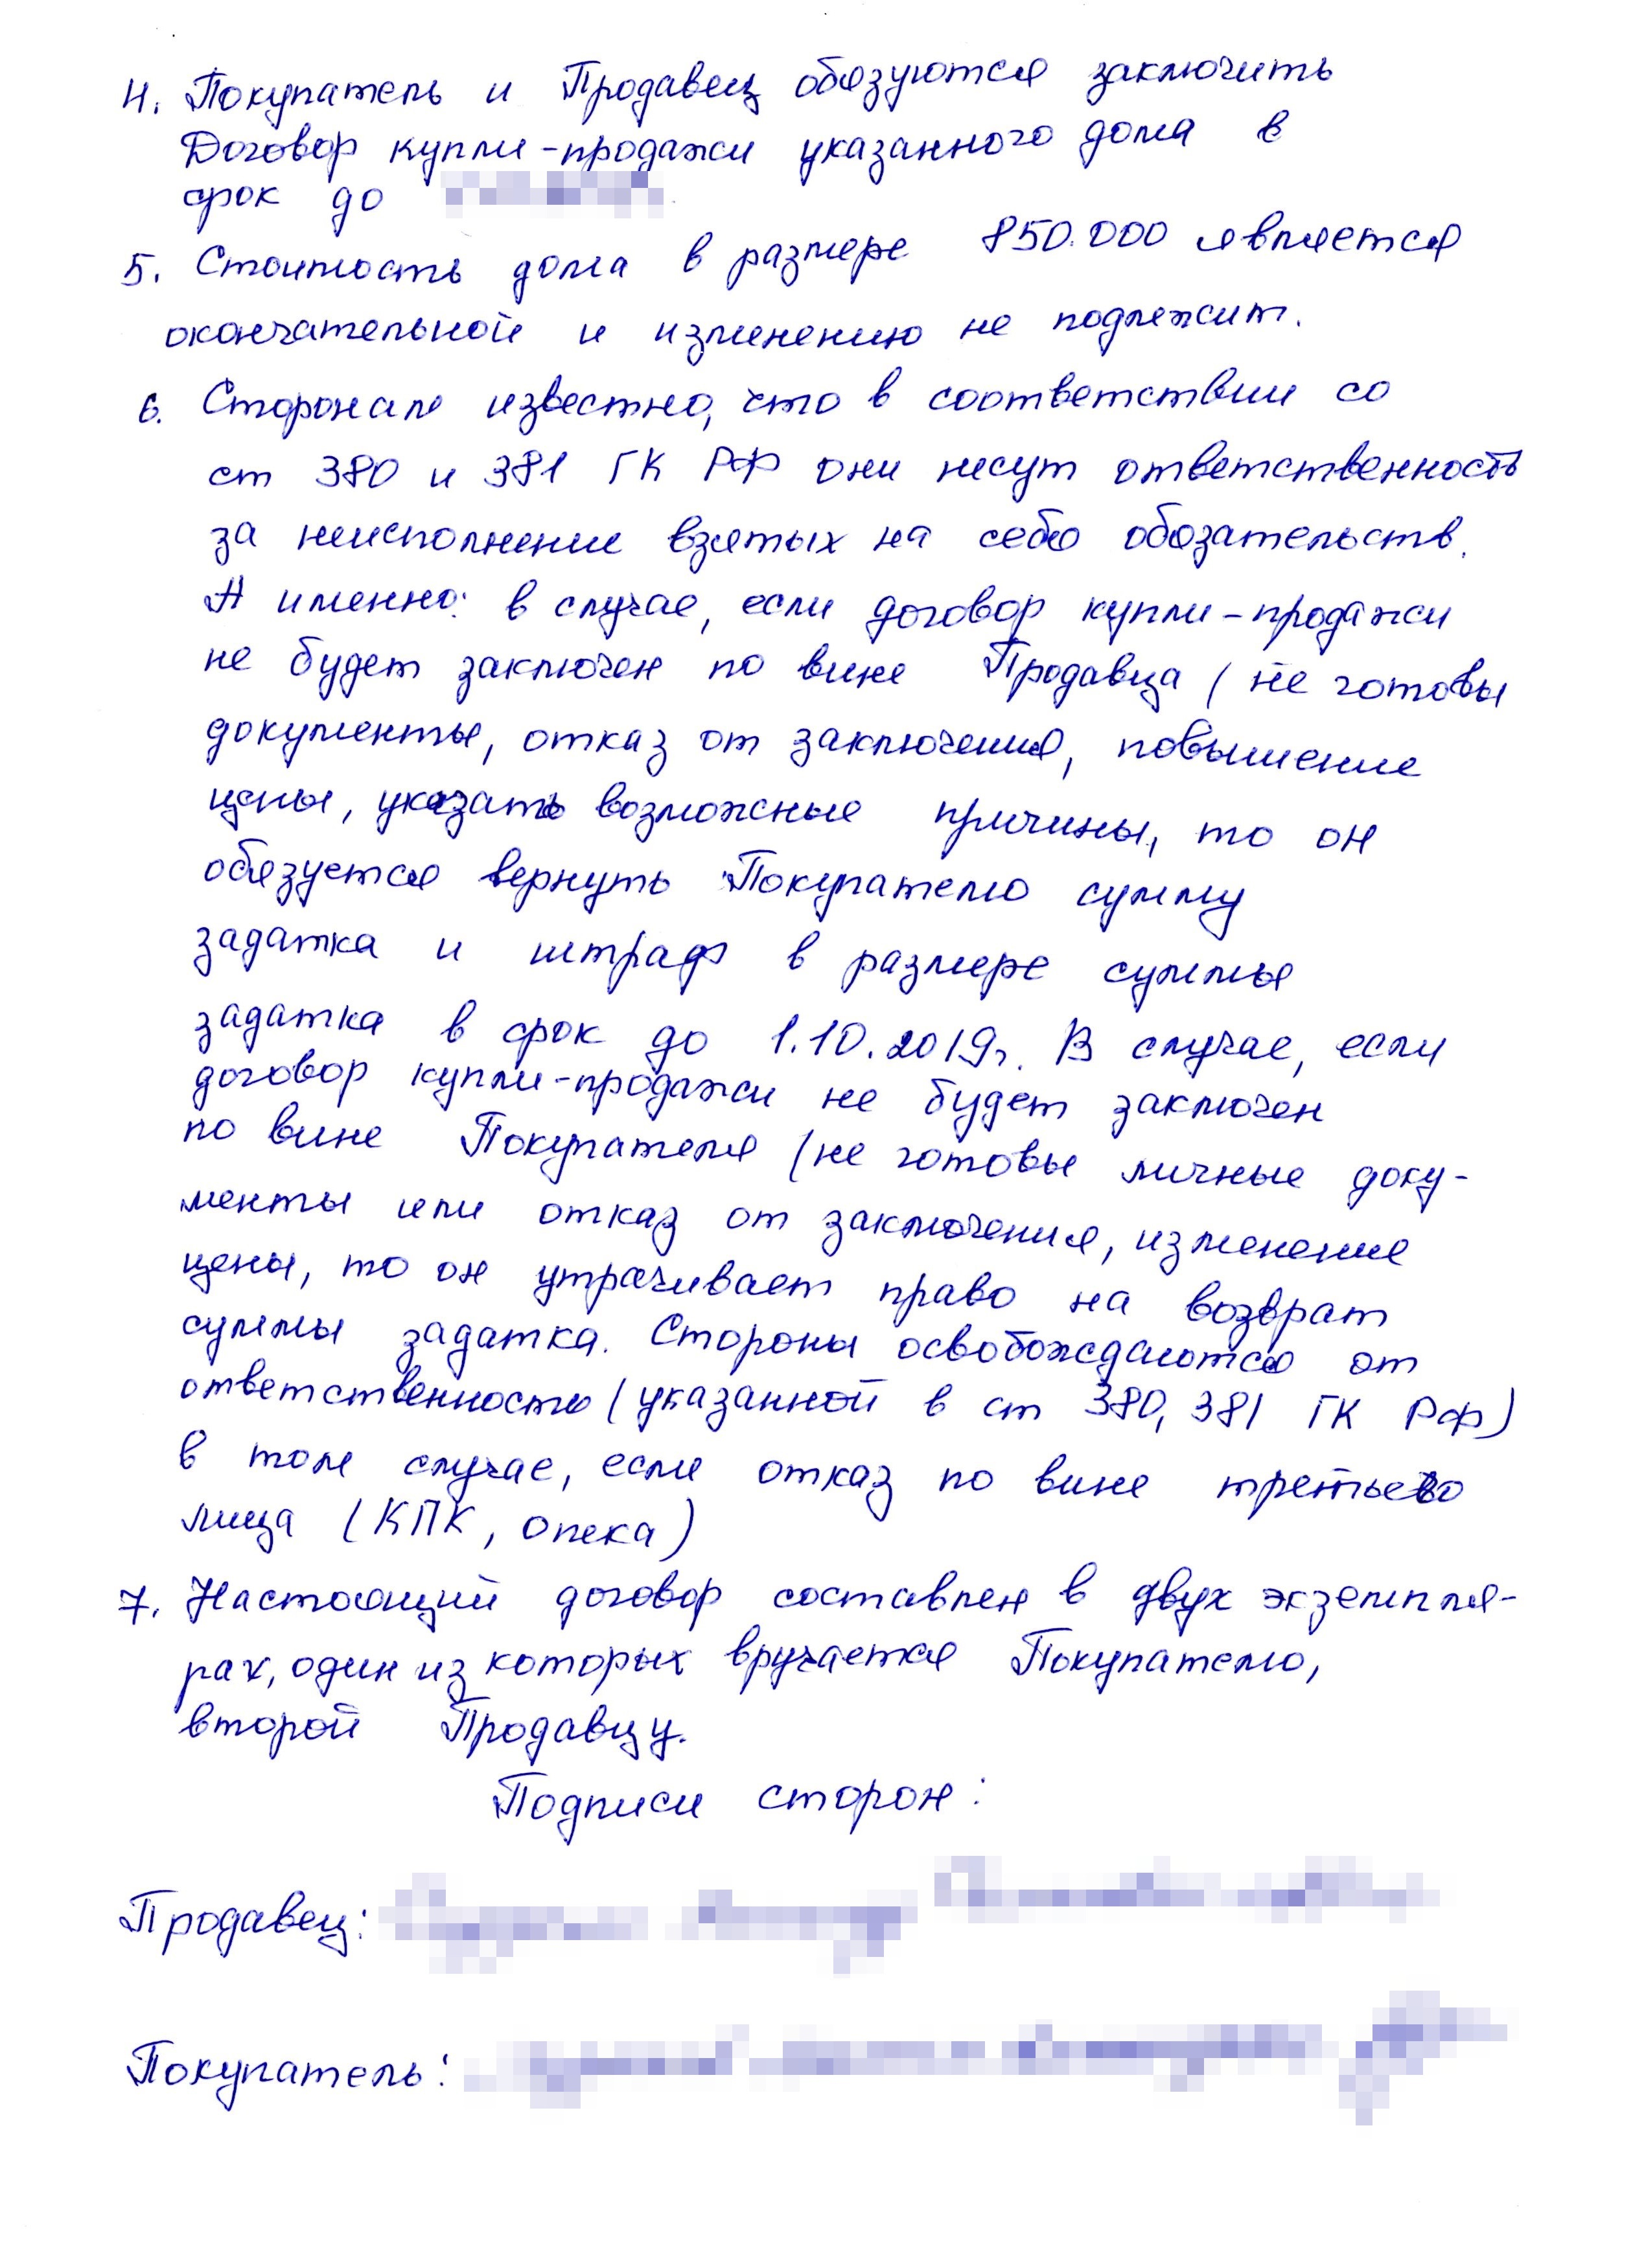 4. Покупатель и Продавец обязуются заключить
Договор купли-продажи указанного дома в
срок до
5. Стоимость дома в размере 850.000 является
окончательной и изменению не подлежит.
6. Сторонам известно, что в соответствии со
ст 380 и 381 ГК РФ они несут ответственность
за неисполнение взятых на себя обязательств.
А именно: в случае, если договор купли-продажи
не будет заключен по вине Продавца (не готовы
документы, отказ от заключения, повышение
цены, указать возможные причины, то он
обязуется вернуть Покупателю сумму
задатка и штраф в размере суммы
задатка в срок до 1.10.2019г. В случае, если
договор купли-продажи не будет заключен
по вине Покупателя (не готовы личные доку-
менты или отказ от заключения, изменение
цены, то он утрачивает право на возврат
суммы задатка. Стороны освобождаются от
ответственности (указанной в ст 380, 381 ГК РФ)
в том случае, если отказ по вине третьего
лица (КПК, опека)
7. Настоящий договор составлен в двух экземпля-
рах, один из которых вручается Покупателю,
второй Продавцу.
Подписи сторон:
Продавец:
Покупатель: